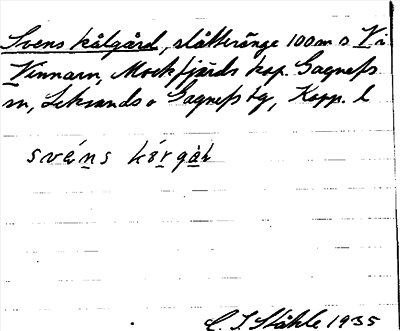 Svens kålgård, slåtteränge 100 m s Vi
Vinnarn, Mockfjärds kap. Gagnefs
sn, Leksands o Gagnefs tg, Kopp. l
svȧ́ns kṓrgȧ̀ḷ
C. I. Ståhle 1935